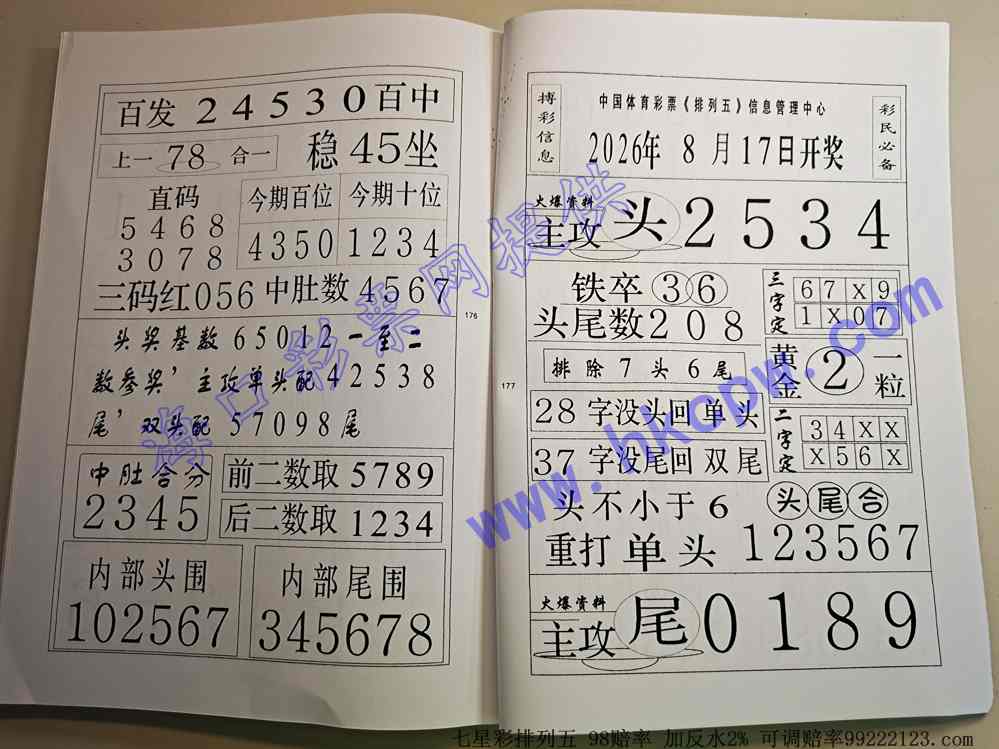 百发 24530 百中
上一 78 合一 稳 45 坐
直码
5468
3078
今期百位 今期十位
4350 1234
三码红056 中肚数 4567
头奖基数 65012 一至二
数参奖’主攻单头配 42538
尾’双头配 57098 尾
中肚合分
2345
前二数取 5789
后二数取 1234
内部头围
102567
内部尾围
345678
176
177
搏彩信息
中国体育彩票《排列五》信息管理中心
2026年 8 月17日开奖
彩民必备
火爆资料
主攻 头 2534
铁卒 36
头尾数 208
三字定
67X9
1X07
排除 7 头 6 尾
黄金 2 一粒
28 字没头回单头
37 字没尾回双尾
二字定
34XX
X56X
头不小于 6 头尾合
重打单头 123567
火爆资料
主攻 尾 0189
海口彩票网提供
www.hkcpw.com
七星彩排列五 98赔率 加反水2% 可调赔率99222123.com